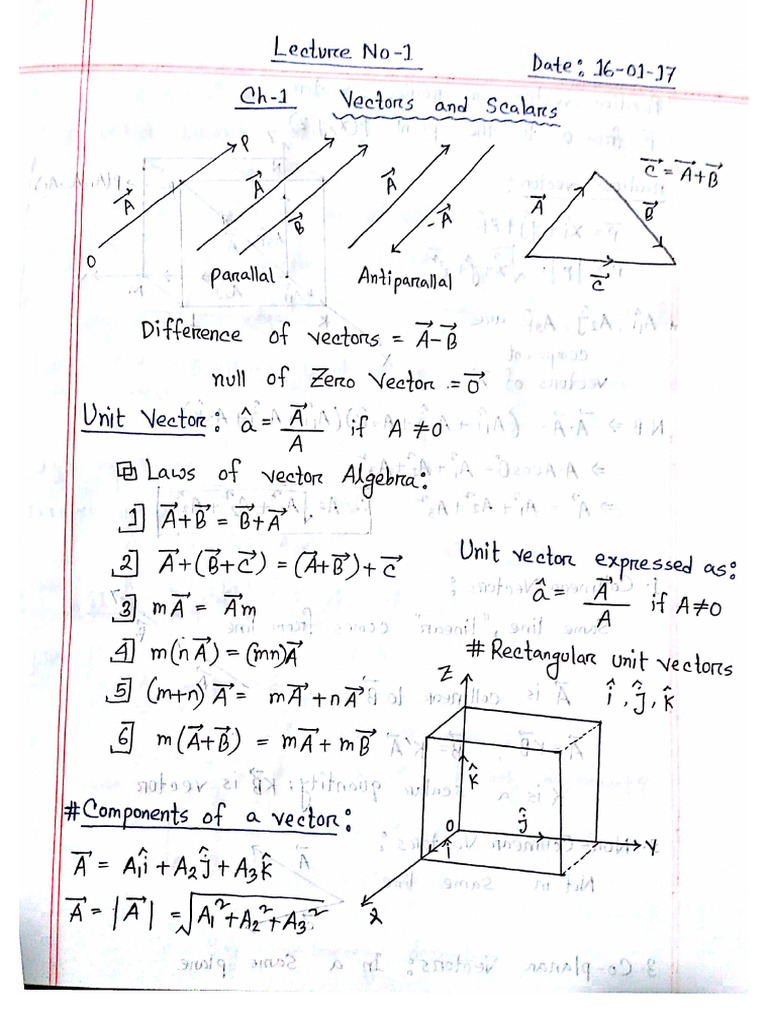 Lecture No-1
Date: 16-01-17
Ch-1 Vectors and Scalars
P
A⃗
O
A⃗
B⃗
Parallal
A⃗
-A⃗
Antiparallal
C⃗ = A⃗+B⃗
A⃗
B⃗
C⃗
Difference of vectors = A⃗-B⃗
null of Zero Vector = 0⃗
Unit Vector: â = A⃗/A if A ≠ 0
Laws of vector Algebra:
1] A⃗+B⃗ = B⃗+A⃗
2] A⃗+(B⃗+C⃗) = (A⃗+B⃗)+C⃗
3] mA⃗ = A⃗m
4] m(nA⃗) = (mn)A⃗
5] (m+n)A⃗ = mA⃗+nA⃗
6] m(A⃗+B⃗) = mA⃗+mB⃗
Unit vector expressed as:
â = A⃗/A if A≠0
# Rectangular unit vectors
î, ĵ, k̂
Z
k̂
O
ĵ
Y
î
x
#Components of a vector:
A⃗ = A₁î+A₂ĵ+A₃k̂
A⃗ = |A⃗| = √A₁²+A₂²+A₃²